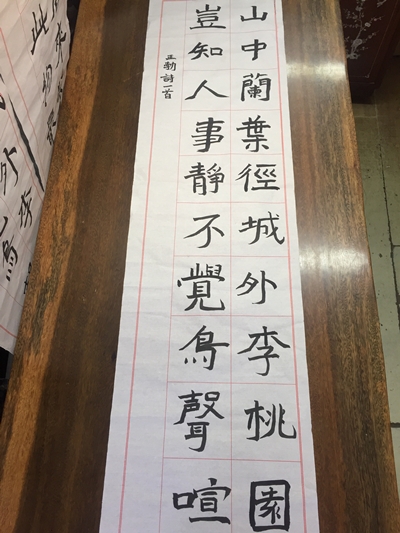 山中蘭葉徑城外李桃園
豈知人事靜不覺鳥聲喧
王勃詩一首
此物
外